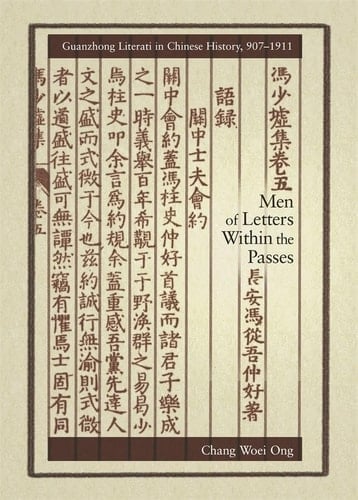 Guanzhong Literati in Chinese History, 907–1911
馮少墟集卷五
語錄
長安馮從吾仲好著
關中士夫會約
關中會約蓋馮柱史仲好首議而諸君子樂成
之一時義舉百年希覯于于野渙群之易易少
焉柱史叩余言爲約規余蓋重感吾黨先達人
文之盛而式微于今也茲約誠行無渝則式微
者以道盛往盛可無譚然竊有懼焉士固有同
馮少墟集
卷五
Men
of Letters
Within the
Passes
Chang Woei Ong